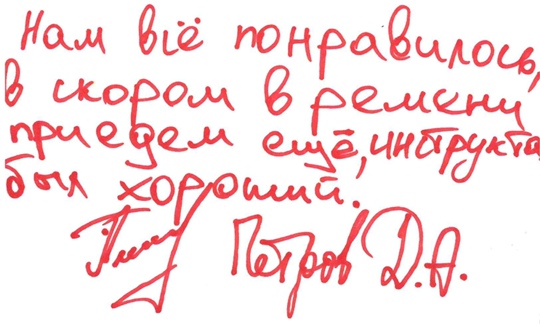 Нам всё понравилось,
в скором времени
приедем ещё, интрукто
был хороший.
Петров Д.А.